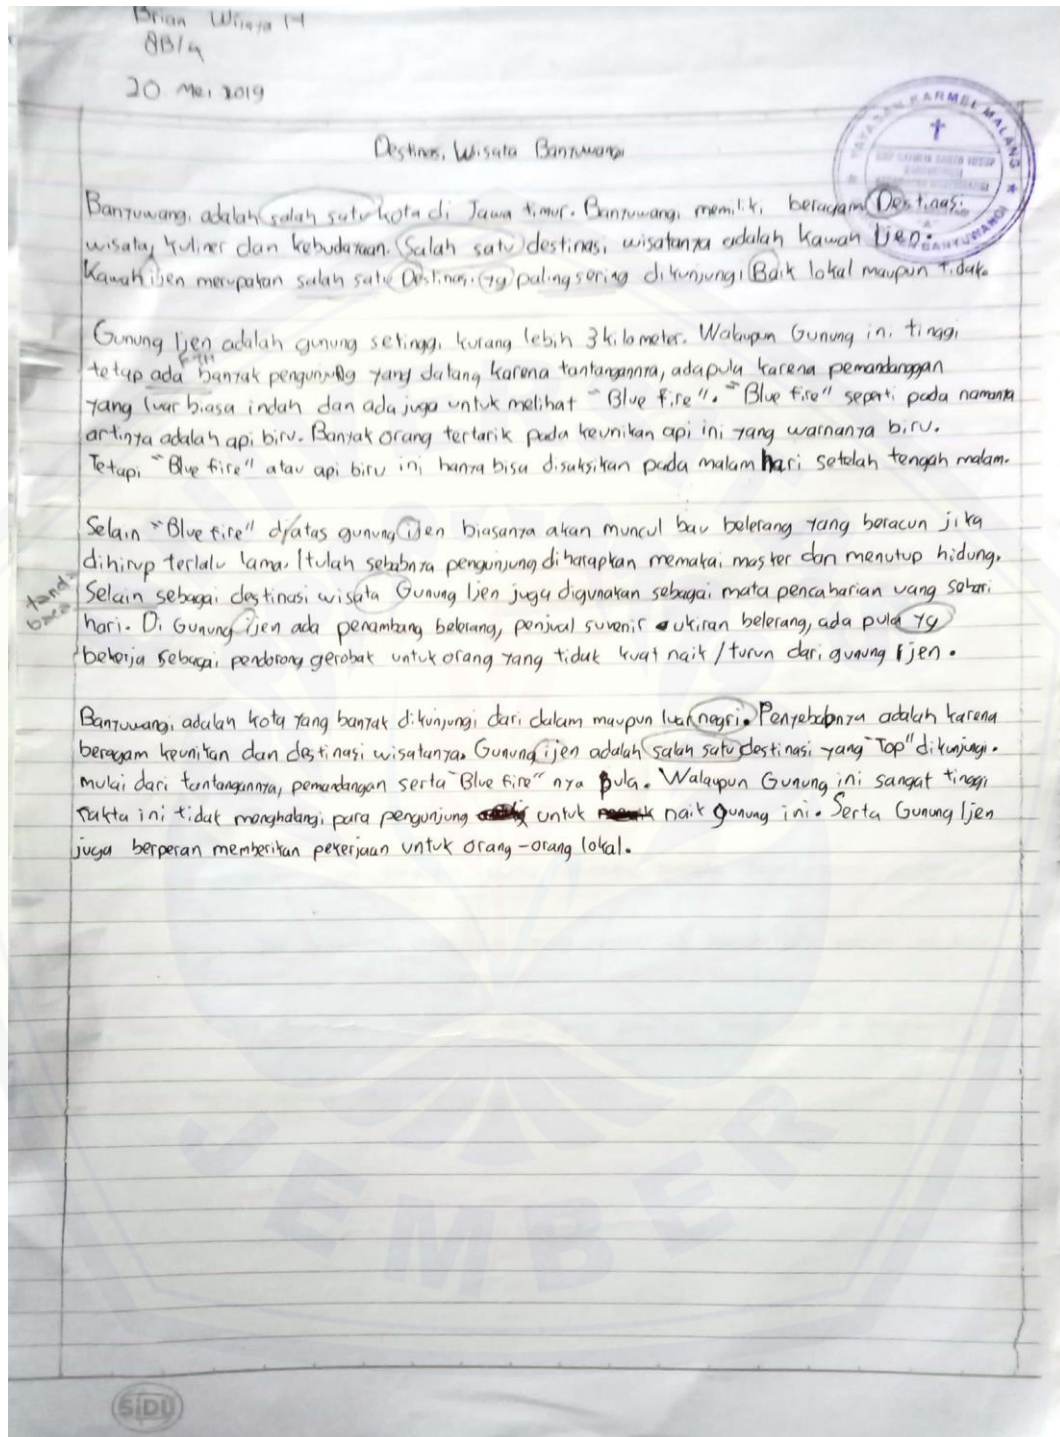 Brian Wijaya H
8B/4
20 Mei 2019
YAYASAN KARMEL MALANG
BANYUWANGI
Destinasi Wisata Banyuwangi
Banyuwangi adalah salah satu kota di Jawa timur. Banyuwangi memiliki beragam Destinasi
wisata, kuliner dan kebudayaan. Salah satu destinasi wisatanya adalah Kawah Ijen.
Kawah ijen merupakan salah satu Destinasi yg paling sering dikunjungi Baik lokal maupun tidak.
Gunung Ijen adalah gunung setinggi kurang lebih 3 kilometer. Walaupun Gunung ini tinggi
tetap ada banyak pengunjung yang datang karena tantangannya, adapula karena pemandanggan
yang luar biasa indah dan ada juga untuk melihat "Blue fire". "Blue fire" seperti pada namanya
artinya adalah api biru. Banyak orang tertarik pada keunikan api ini yang warnanya biru.
Tetapi "Blue fire" atau api biru ini hanya bisa disaksikan pada malam hari setelah tengah malam.
Selain "Blue fire" di atas gunung ijen biasanya akan muncul bau belerang yang beracun jika
dihirup terlalu lama. Itulah sebabnya pengunjung diharapkan memakai masker dan menutup hidung.
tanda
baca
Selain sebagai destinasi wisata Gunung Ijen juga digunakan sebagai mata pencaharian uang sehari
hari. Di Gunung ijen ada penambang belerang, penjual suvenir ukiran belerang, ada pula yg
bekerja sebagai pendorong gerobak untuk orang yang tidak kuat naik / turun dari gunung Ijen.
Banyuwangi adalah kota yang banyak dikunjungi dari dalam maupun luar negri. Penyebabnya adalah karena
beragam keunikan dan destinasi wisatanya. Gunung ijen adalah salah satu destinasi yang "Top" dikunjungi.
mulai dari tantangannya, pemandangan serta "Blue Fire" nya pula. Walaupun Gunung ini sangat tinggi
fakta ini tidak menghalangi para pengunjung untuk naik gunung ini. Serta Gunung Ijen
juga berperan memberikan pekerjaan untuk orang-orang lokal.
JEMBER
SiDU